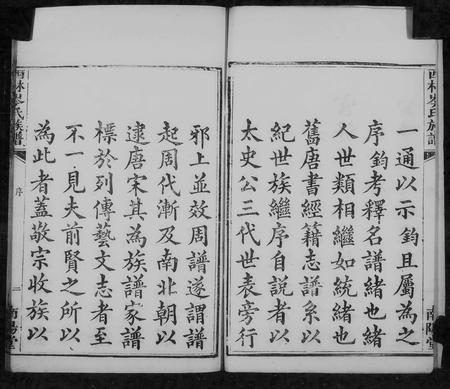 西林岑氏族譜
一通以示鈞且屬為之
序鈞考釋名譜緒也緒
人世類相繼如統緒也
舊唐書經籍志譜系以
紀世族繼序自說者以
太史公三代世表旁行
南陽堂
邪上並效周譜遂謂譜
起周代漸及南北朝以
逮唐宋其為族譜家譜
標於列傳藝文志者至
不一見夫前賢之所以
為此者蓋敬宗收族以
西林岑氏族譜
序
二
南陽堂